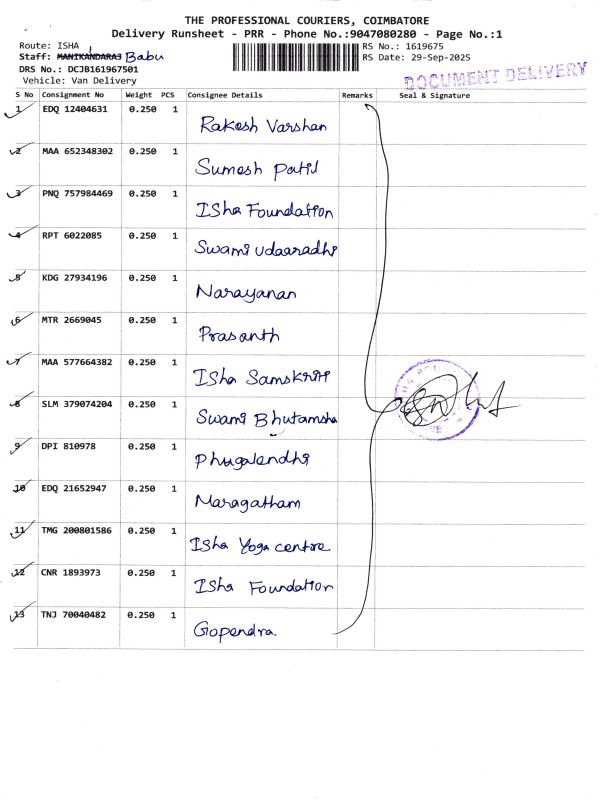 THE PROFESSIONAL COURIERS, COIMBATORE
Delivery Runsheet - PRR - Phone No.:9047080280 - Page No.:1
Route: ISHA
RS No.: 1619675
Staff: MANIKANDARAJ Babu
RS Date: 29-Sep-2025
DRS No.: DCJB161967501
Vehicle: Van Delivery
DOCUMENT DELIVERY
S No Consignment No Weight PCS Consignee Details Remarks Seal & Signature
1 EDQ 12404631 0.250 1 Rakesh Varshan
2 MAA 652348302 0.250 1 Sumesh Patil
3 PNQ 757984469 0.250 1 Isha Foundation
4 RPT 6022085 0.250 1 Swami udaaradhi
5 KDG 27934196 0.250 1 Narayanan
6 MTR 2669045 0.250 1 Prasanth
7 MAA 577664382 0.250 1 Isha Samskriti
8 SLM 379074204 0.250 1 Swami Bhutamsha
9 DPI 810978 0.250 1 Phugalendhi
10 EDQ 21652947 0.250 1 Maragatham
11 TMG 200801586 0.250 1 Isha Yoga centre
12 CNR 1893973 0.250 1 Isha Foundation
13 TNJ 70040482 0.250 1 Gopendra.